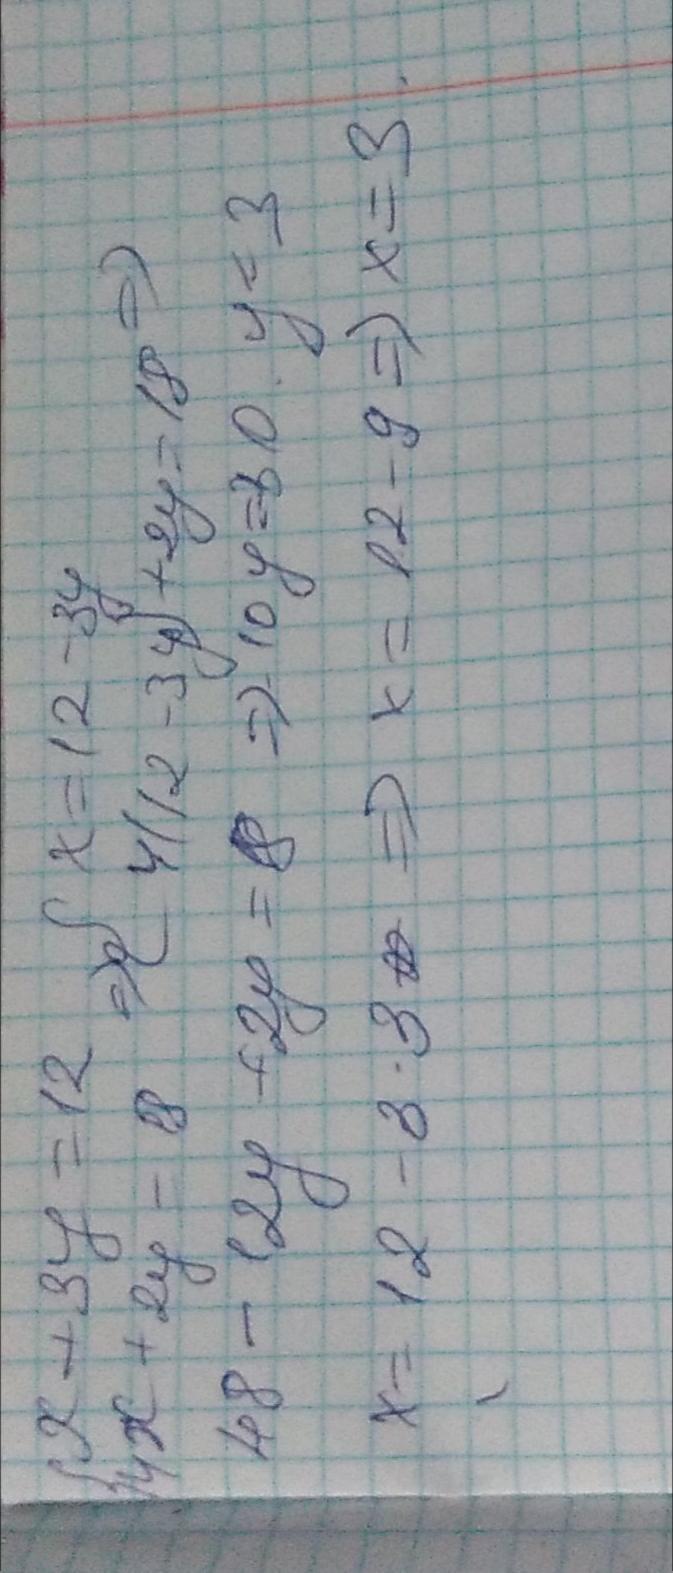 { x + 3y = 12 => { x = 12 - 3y
4x + 2y = 8 4(12 - 3y) + 2y = 18 =>
48 - 12y + 2y = 8 => 10y = 30. y = 3
x = 12 - 3 · 3 => x = 12 - 9 => x = 3.